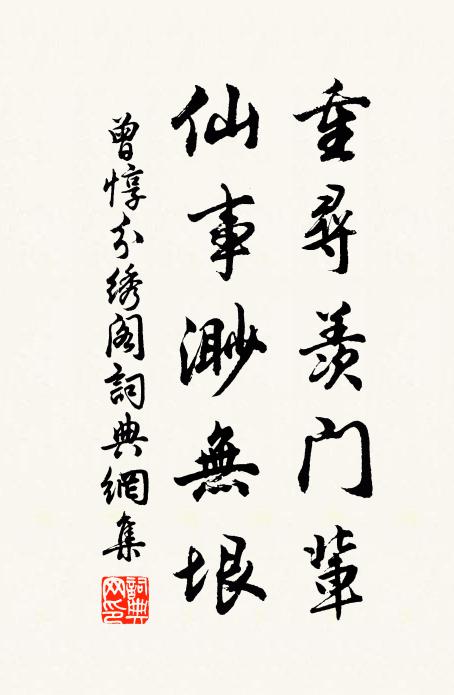 重尋羨門輩
仙事渺無垠
曾惇分綉閣詞典網集
詞典网印